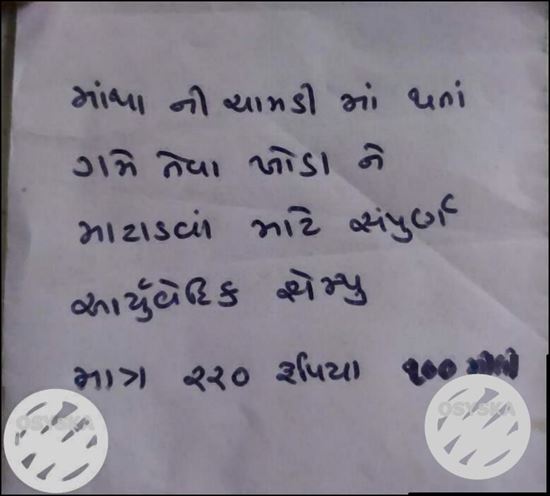 માંથા ની ચામડી માં થતાં
ગમે તેવા ખોડા ને
માટાડવાં માટે સંપુર્ણ
આર્યુવેદિક સેમ્પુ
માત્ર ૨૨૦ રૂપિયા ૧૦૦
OSYSKA
OSYSKA